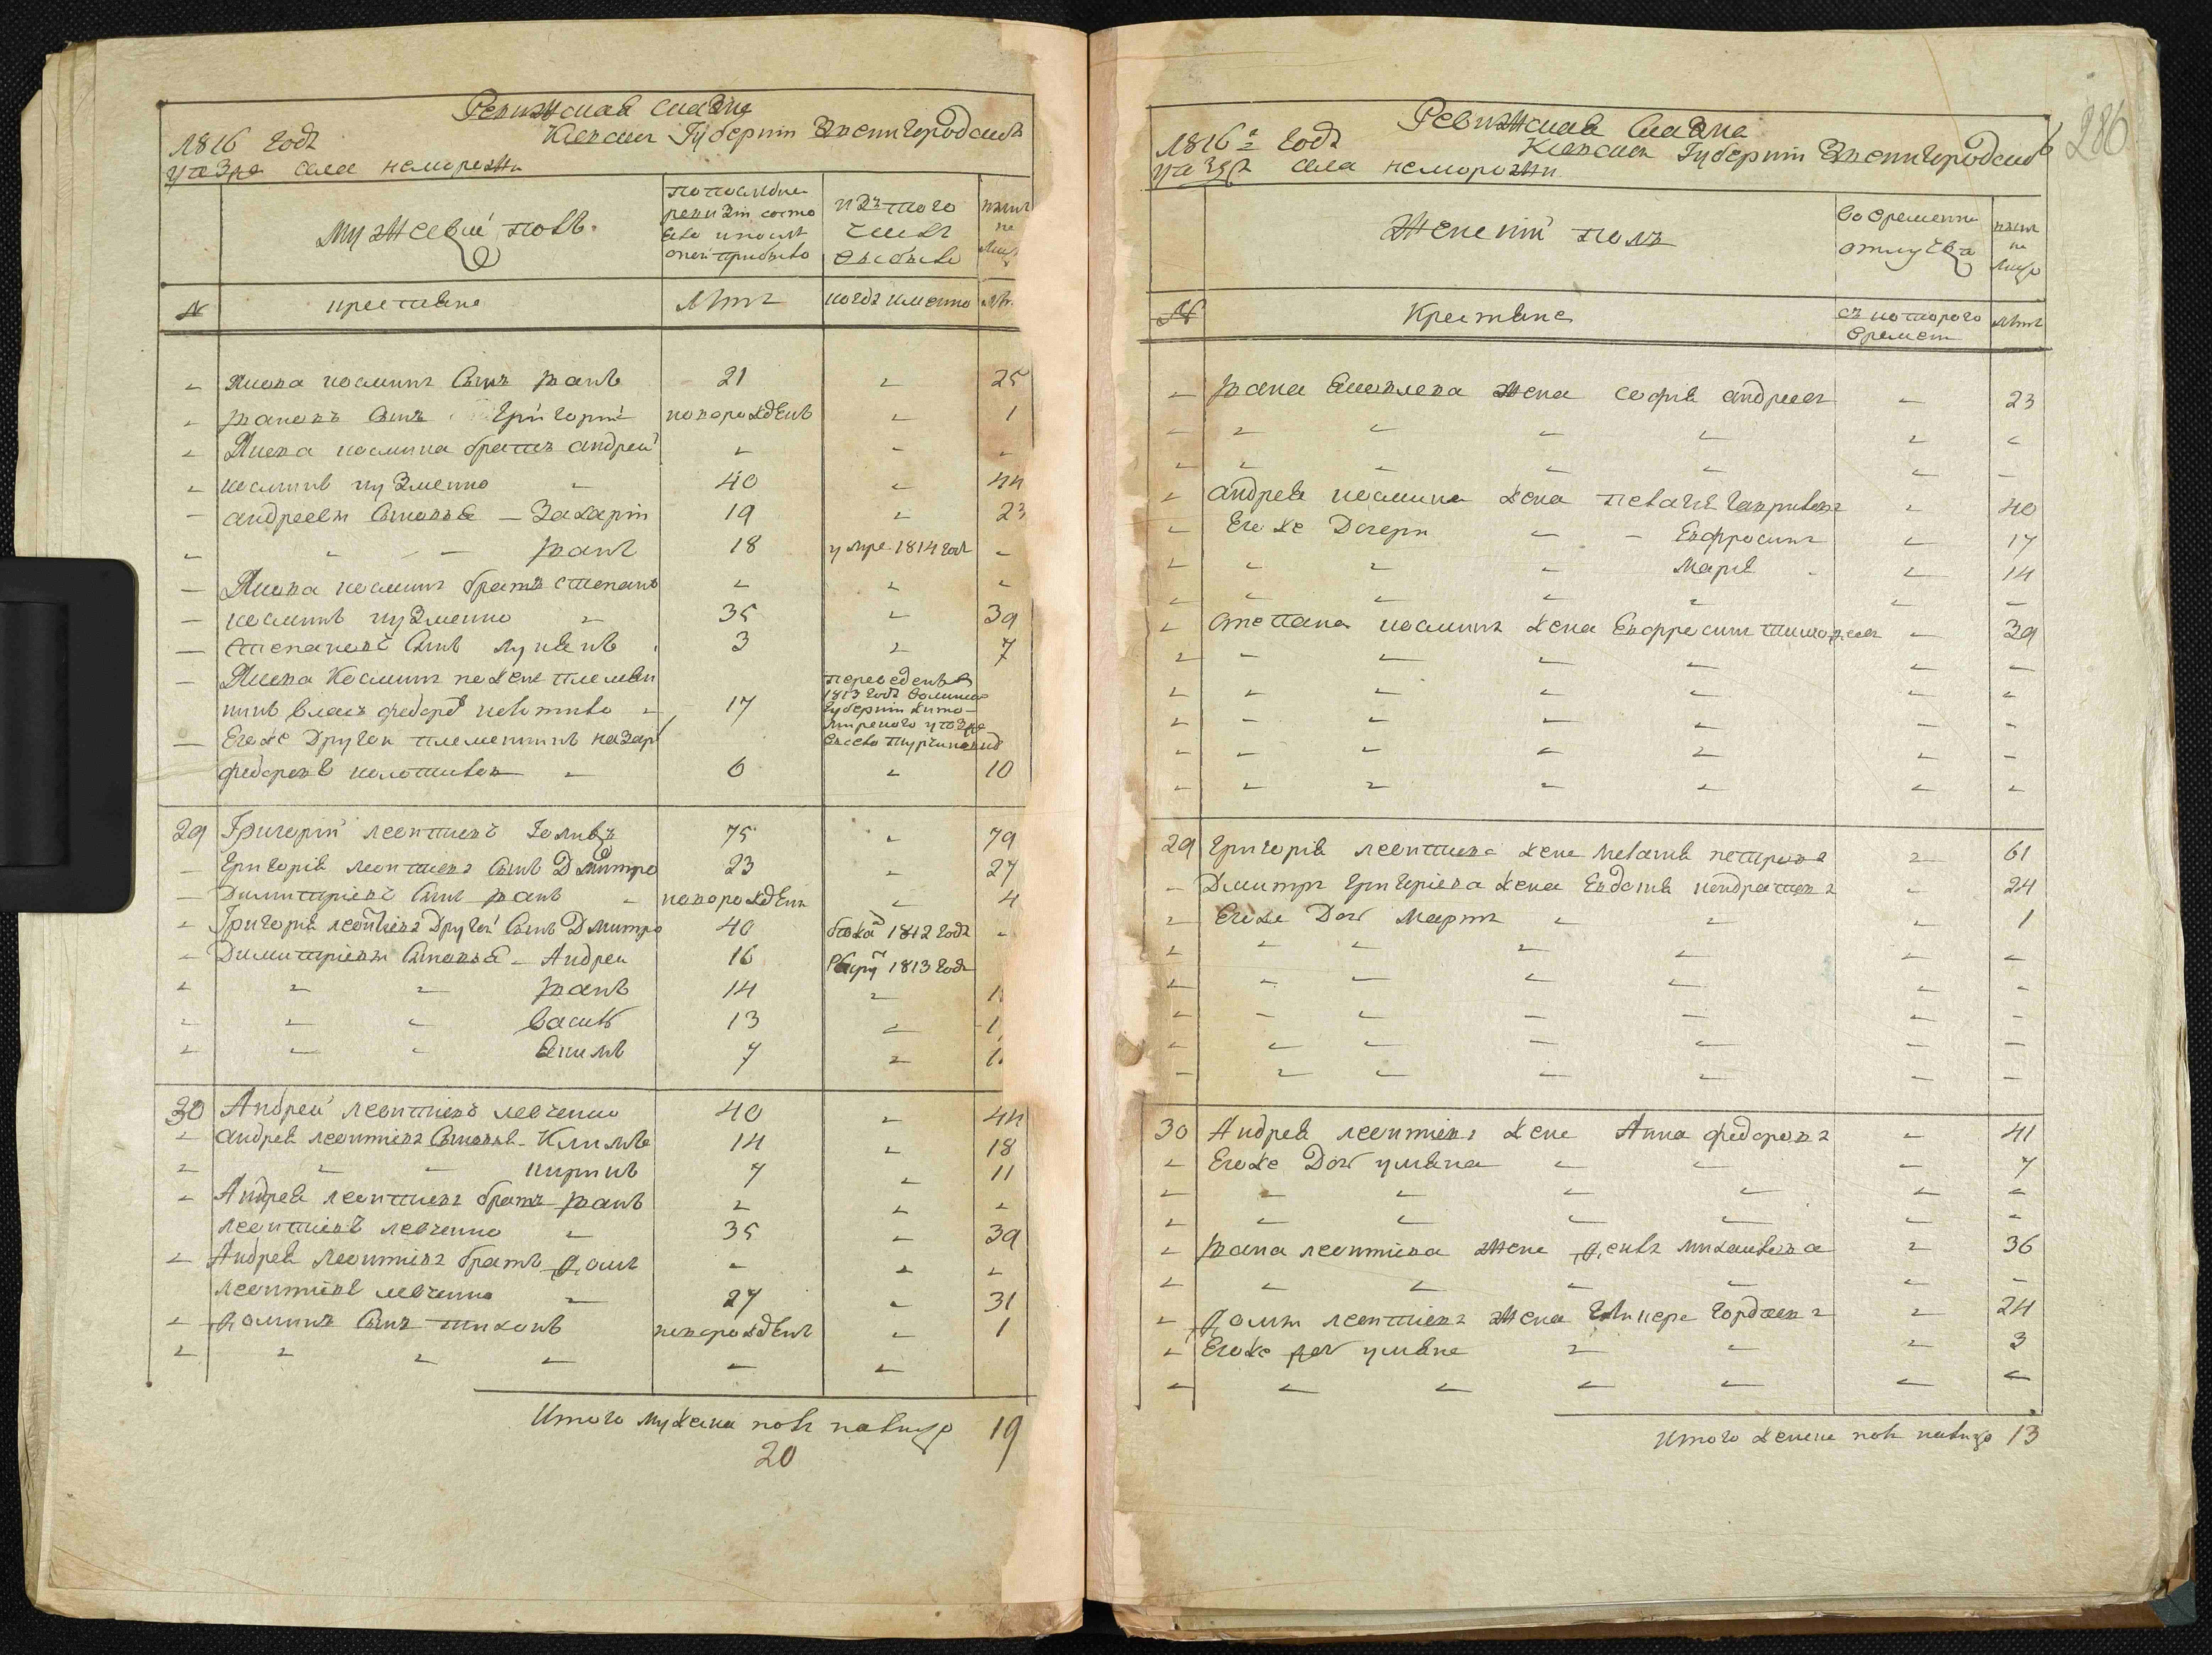 Ревижская сказка
1816 годъ Киевской Губернии Звенигородского
уезда села неморожи
мужеский полъ.
По последней
ревизіи состо
яло и после
оной прибыло
изъ того
числа
выбыло
ныне
на
лицо
№
крестьяне
Летъ
когда именно
Лет.
Якова космина Сынъ Иванъ 21 25
Ивановъ Сынъ Григорий новорожденъ 1
Якова космина братъ андрей
косминъ кузменко 40 44
андреевы Сыновья Захарій 19 23
Иванъ 18 умре 1814 года
Якова космина братъ степанъ
косминъ кузменко 35 39
степановъ Сынъ лукьянъ 3 7
Якова Космина по жене племян
никъ власъ федоровъ 17
переведенъ в
1813 годъ
Губернии жито-
мирского уезда
Егоже Другой племенникъ назаръ
федоровъ 6 10
29 Григорій леонтиевъ Голивъ 75 79
Григорія леонтиева Сынъ Дмитро 23 27
Димитріевъ Сынъ Иванъ новорожденъ 4
Григорія леонтиева Другой Сынъ Дмитро 40 бежа 1812 года
Димитріевы Сыновья Андрей 16 1813 года
Иванъ 14
Василь 13
Екимъ 7
30 Андрей леонтиевъ левченко 40 44
андрея леонтиева Сыновья Климъ 14 18
кирилъ 7 11
Андрея леонтиева братъ Иванъ
леонтиевъ левченко 35 39
Андрея леонтиева братъ фома
леонтиевъ левченко 27 31
фоминъ Сынъ тихонъ новорожденъ 1
Итого мужеска полу налицо 19
20
286
Ревижская сказка
1816 годъ Киевской Губернии Звенигородского
уезда села неморожи
Женский полъ
во временной
отлучке
ныне
на
лицо
№
Крестьяне
съ которого
времени
летъ
Ивана Яковлева жена софія андреева 23
андрея космина жена пелагея гавриловна 40
Егоже Дочери Евфросина 17
Марія 14
степана космина жена Евфросина тимофеева 39
29 Григорія леонтиева жена петрова 61
Дмитра Григоріева жена Евдокія кондратова 24
Егоже Дочь Марта 1
30 Андрея леонтиева жена Анна федорова 41
Егоже Дочь ульяна 7
Ивана леонтиева жена феня михайлова 36
фомы леонтиева жена Гликера гордеева 24
Егоже дочь ульяна 3
Итого женска полу налицо 13